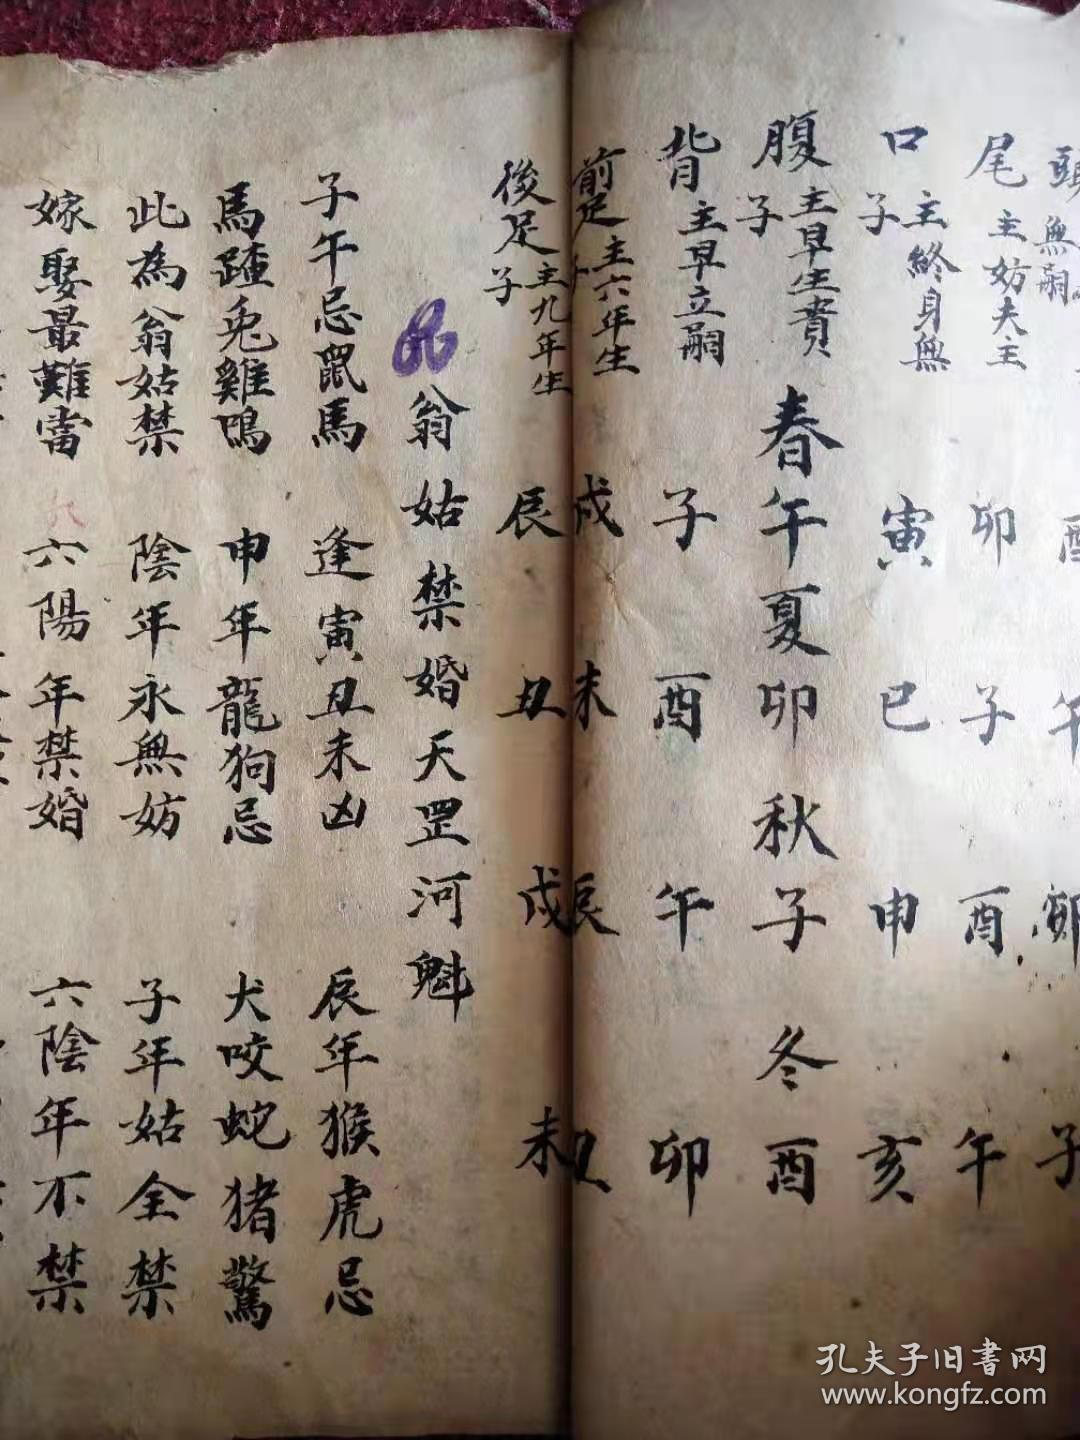 頭 無嗣 酉 午 卯 子
尾 主妨夫主 卯 子 酉 午
口 主終身無子 寅 巳 申 亥
腹 主早生貴子 春午夏卯秋子冬酉
背 主早立嗣 子 酉 午 卯
前足 主六年生子 戌 未 辰 丑
後足 主九年生子 辰 丑 戌 未
翁姑禁婚天罡河魁
子午忌鼠馬 逢寅丑未凶 辰年猴虎忌
馬踏兎雞鳴 申年龍狗忌 犬咬蛇猪驚
此為翁姑禁 陰年永無妨 子年姑全禁
嫁娶最難當 六陽年禁婚 六陰年不禁
孔夫子旧書网
www.kongfz.com